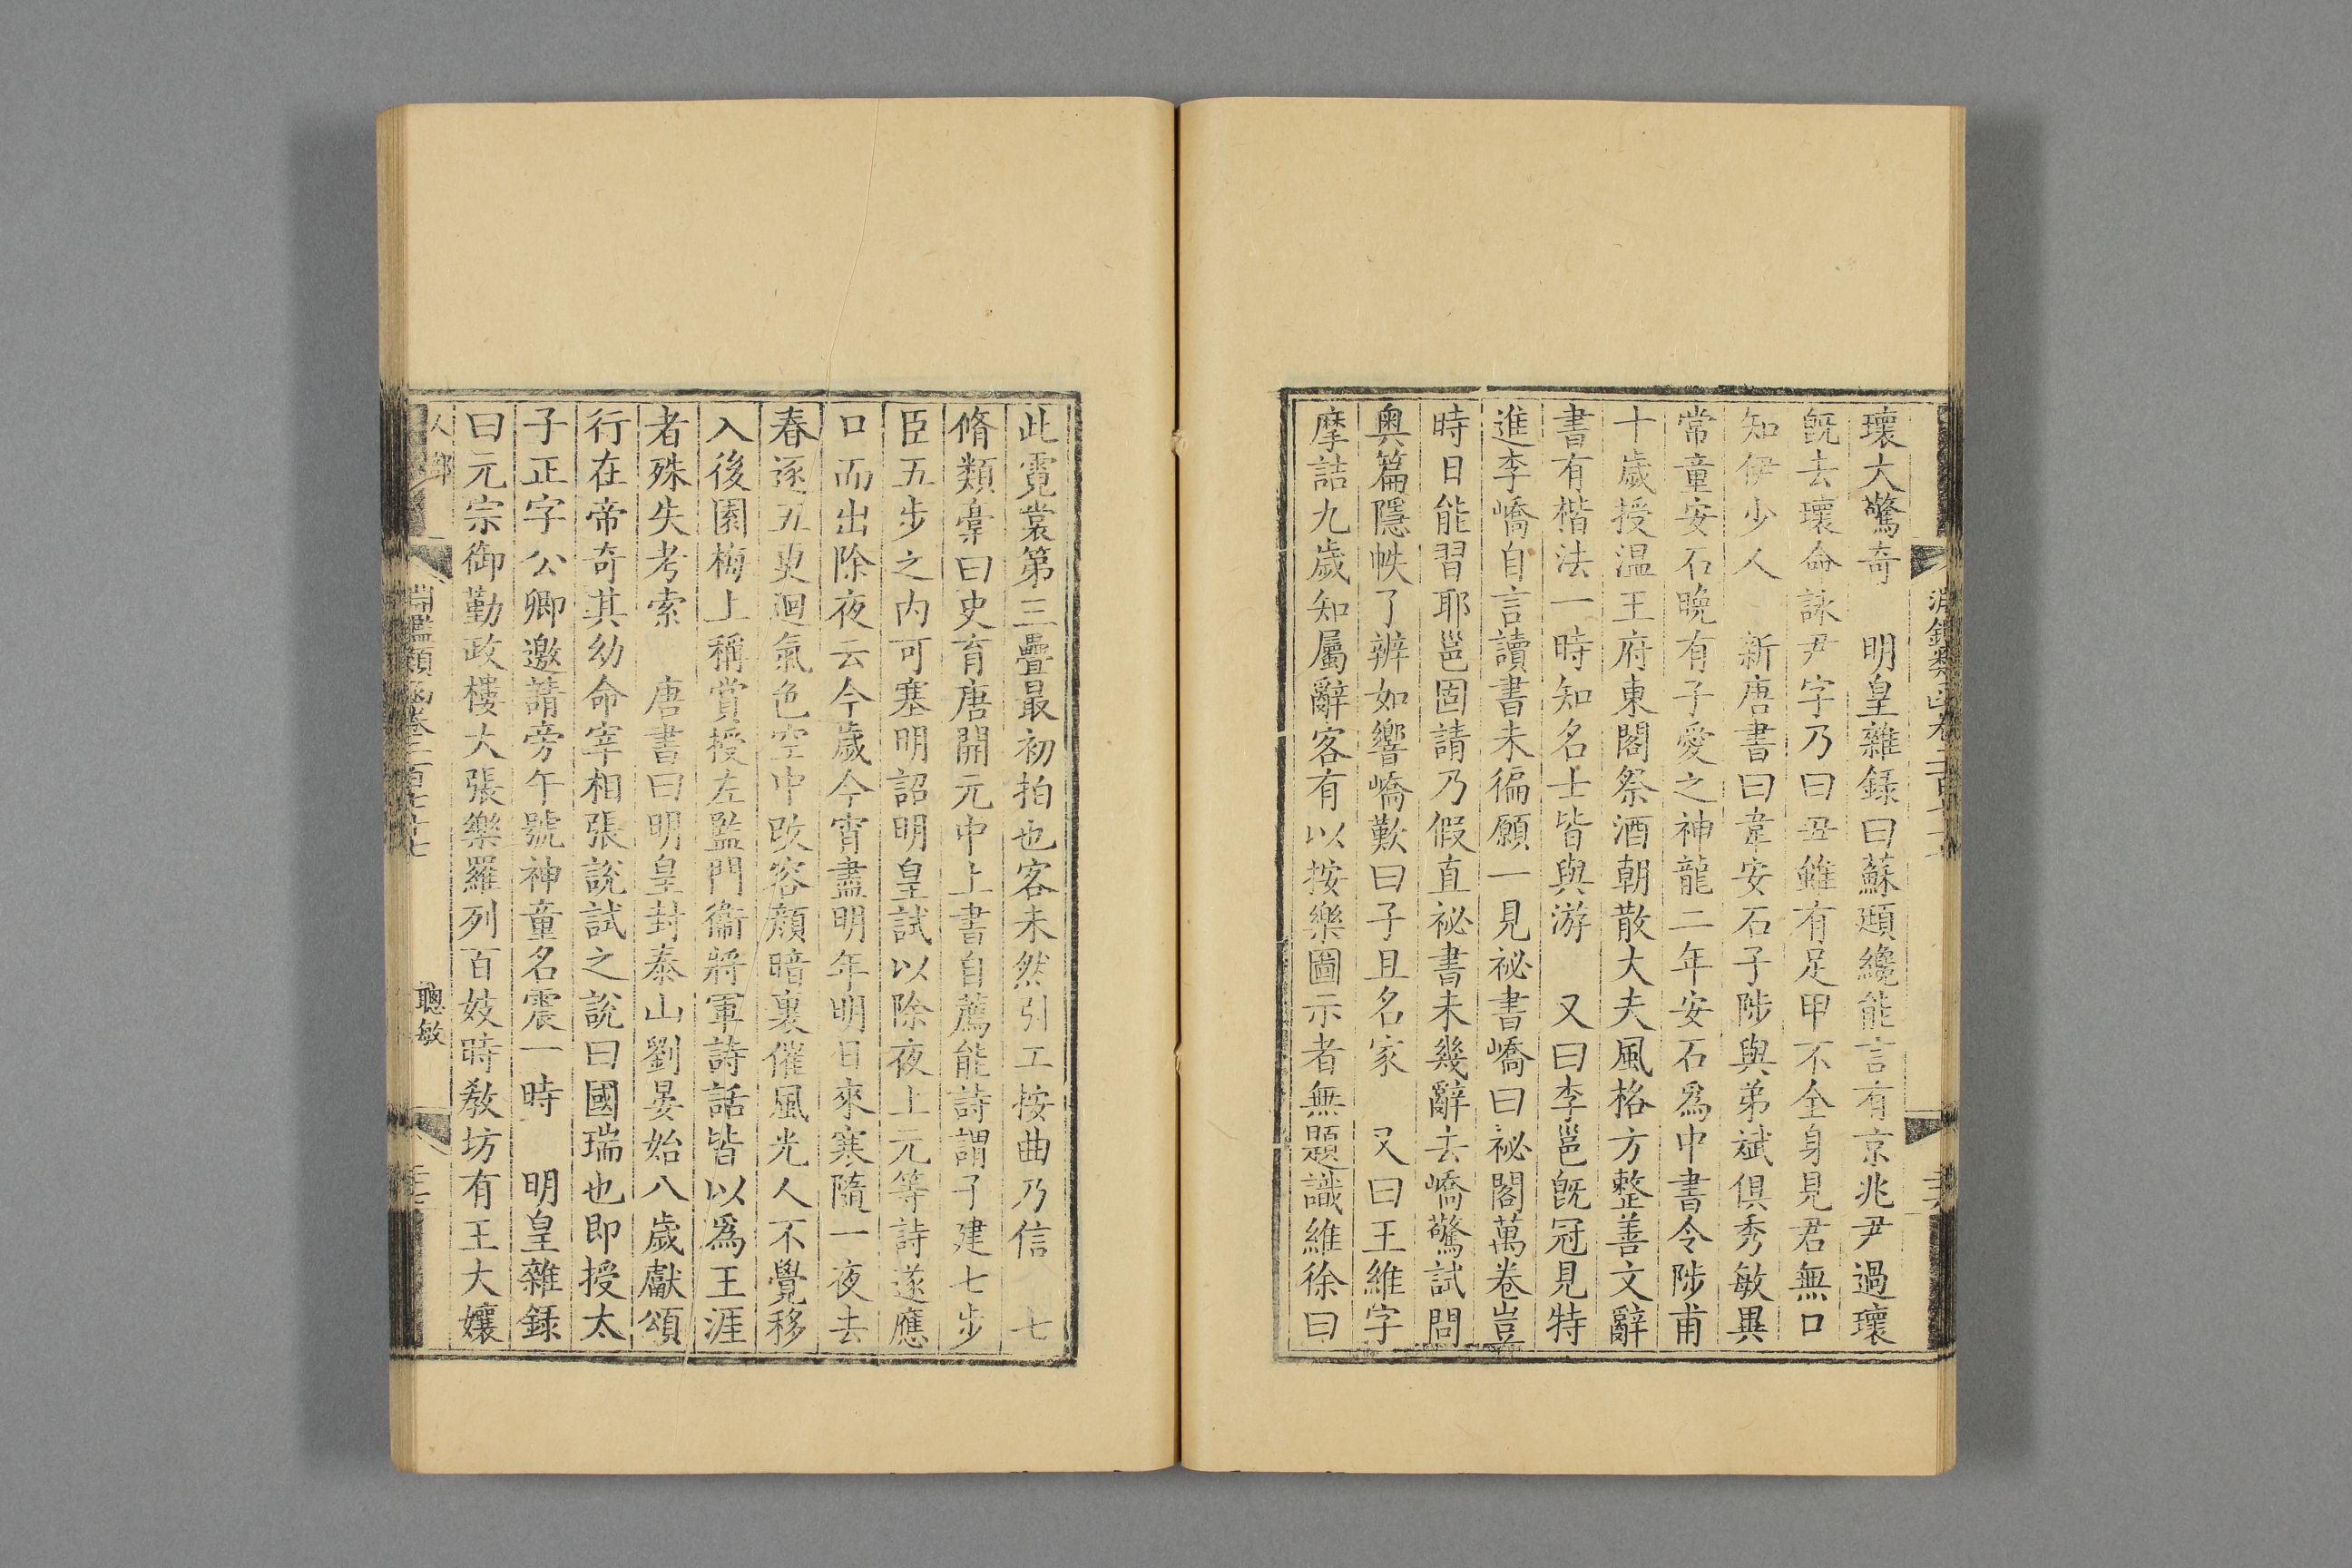 淵鑑類函卷二百七十七
瓌大驚奇　明皇雜錄曰蘇頲纔能言有京兆尹過瓌
旣去瓌命詠尹字乃曰丑雖有足甲不全身見君無口
知伊少人　新唐書曰韋安石子陟與弟斌俱秀敏異
常童安石晚有子愛之神龍二年安石爲中書令陟甫
十歲授温王府東閣祭酒朝散大夫風格方整善文辭
書有楷法一時知名士皆與游　又曰李邕旣冠見特
進李嶠自言讀書未徧願一見祕書嶠曰祕閣萬卷豈
時日能習耶邕固請乃假直祕書未幾辭去嶠驚試問
奧篇隱帙了辨如響嶠歎曰子且名家　又曰王維字
摩詰九歲知屬辭客有以按樂圖示者無題識維徐曰
此霓裳第三疊最初拍也客未然引工按曲乃信　七
脩類藁曰史育唐開元中上書自薦能詩謂子建七步
臣五步之内可塞明詔明皇試以除夜上元等詩遂應
口而出除夜云今歲今宵盡明年明日來寒隨一夜去
春逐五更迴氣色空中改容顏暗裏催風光人不覺移
入後園梅上稱賞授左監門衞將軍詩話皆以爲王涯
者殊失考索　唐書曰明皇封泰山劉晏始八歲獻頌
行在帝奇其幼命宰相張說試之說曰國瑞也即授太
子正字公卿邀請旁午號神童名震一時　明皇雜錄
曰元宗御勤政樓大張樂羅列百妓時教坊有王大孃
人部
淵鑑類函卷二百七十七
聰敏